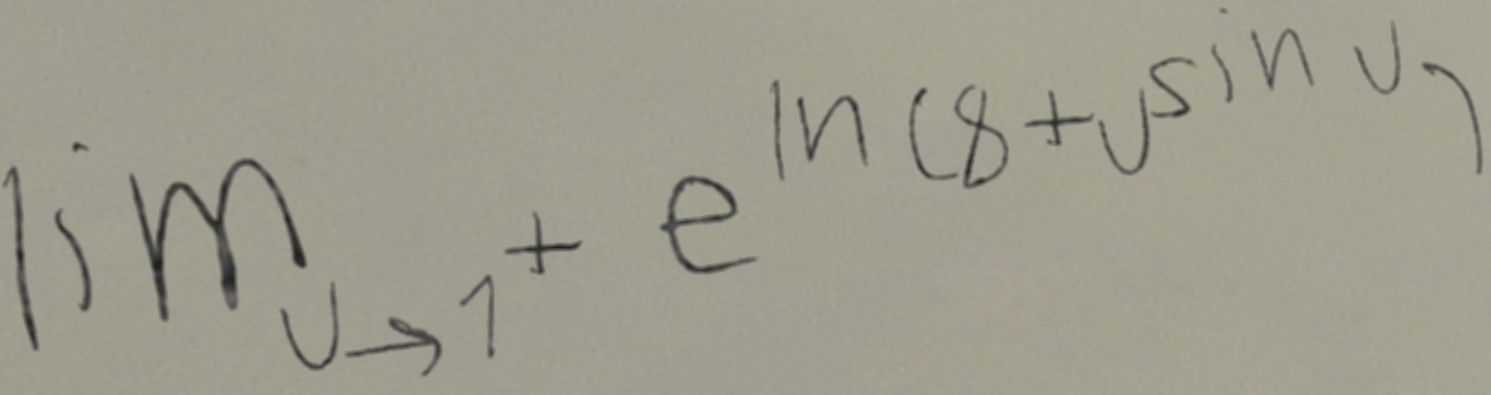 lim_{v→1^+} e^{ln(8+v^{sin v})}